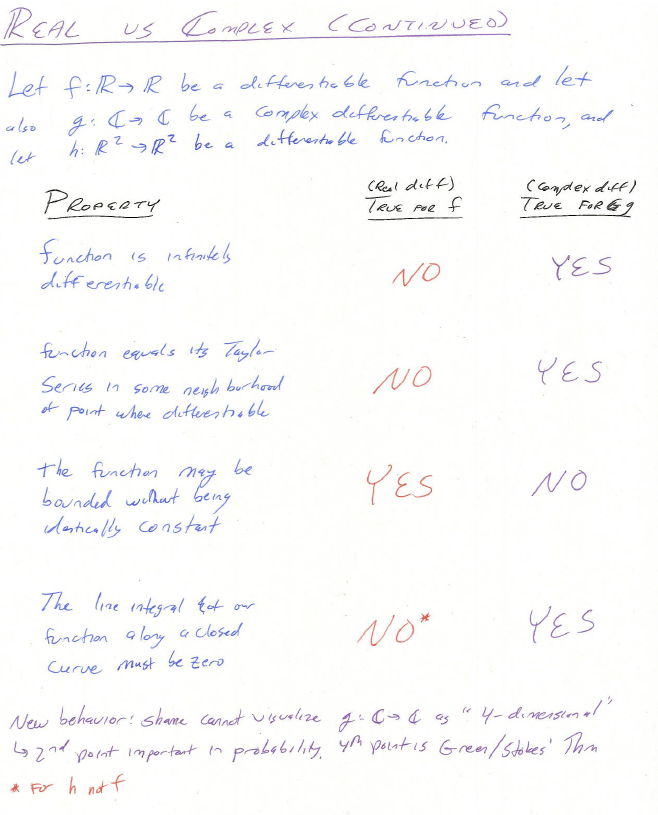 REAL vs COMPLEX (CONTINUED)
Let f: ℝ → ℝ be a differentiable function and let
also g: ℂ → ℂ be a complex differentiable function, and
let h: ℝ² → ℝ² be a differentiable function.
PROPERTY
(Real diff)
TRUE FOR f
(Complex diff)
TRUE FOR g
function is infinitely
differentiable
NO
YES
function equals its Taylor
Series in some neighborhood
of point where differentiable
NO
YES
The function may be
bounded without being
identically constant
YES
NO
The line integral of our
function along a closed
curve must be zero
NO*
YES
New behavior: shame cannot visualize g: ℂ → ℂ as "4-dimensional"
↳ 2nd point important in probability. 4th point is Green/Stokes' Thm
* For h not f